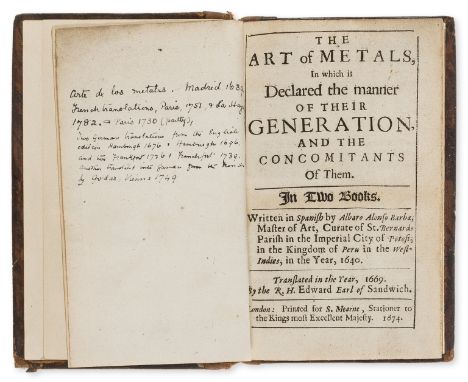 Arte de los metales. Madrid
French translations, Paris, 1751, & La Haye
1782, Paris 1730 (partly),
Two German translations from the English
edition Hamburgh 1676 & Hamburgh 1696
and two Frankfort 1726 & Frankfort 1739.
Another translation into German from the
by Godar. Vienna 1749
THE
ART of METALS,
In which is
Declared the manner
OF THEIR
GENERATION,
AND THE
CONCOMITANTS
Of Them.
In Two Books.
Written in Spanish by Albaro Alonso Barba,
Master of Art, Curate of St. Bernards
Parish in the Imperial City of Potosi,
in the Kingdom of Peru in the West-
Indies, in the Year, 1640.
Translated in the Year, 1669.
By the R. H. Edward Earl of Sandwich.
London: Printed for S. Mearne, Stationer to
the Kings most Excellent Majesty. 1674.